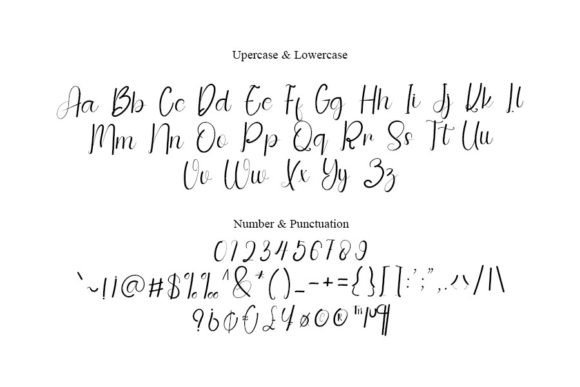 Upercase & Lowercase
Aa Bb Cc Dd Ee Ff Gg Hh Ii Jj Kk Ll
Mm Nn Oo Pp Qq Rr Ss Tt Uu
Vv Ww Xx Yy Zz
Number & Punctuation
0123456789
`~!¡@#$%‰^&*()_-+={}[]:';",.‹›/|\
?¿¢€£¥